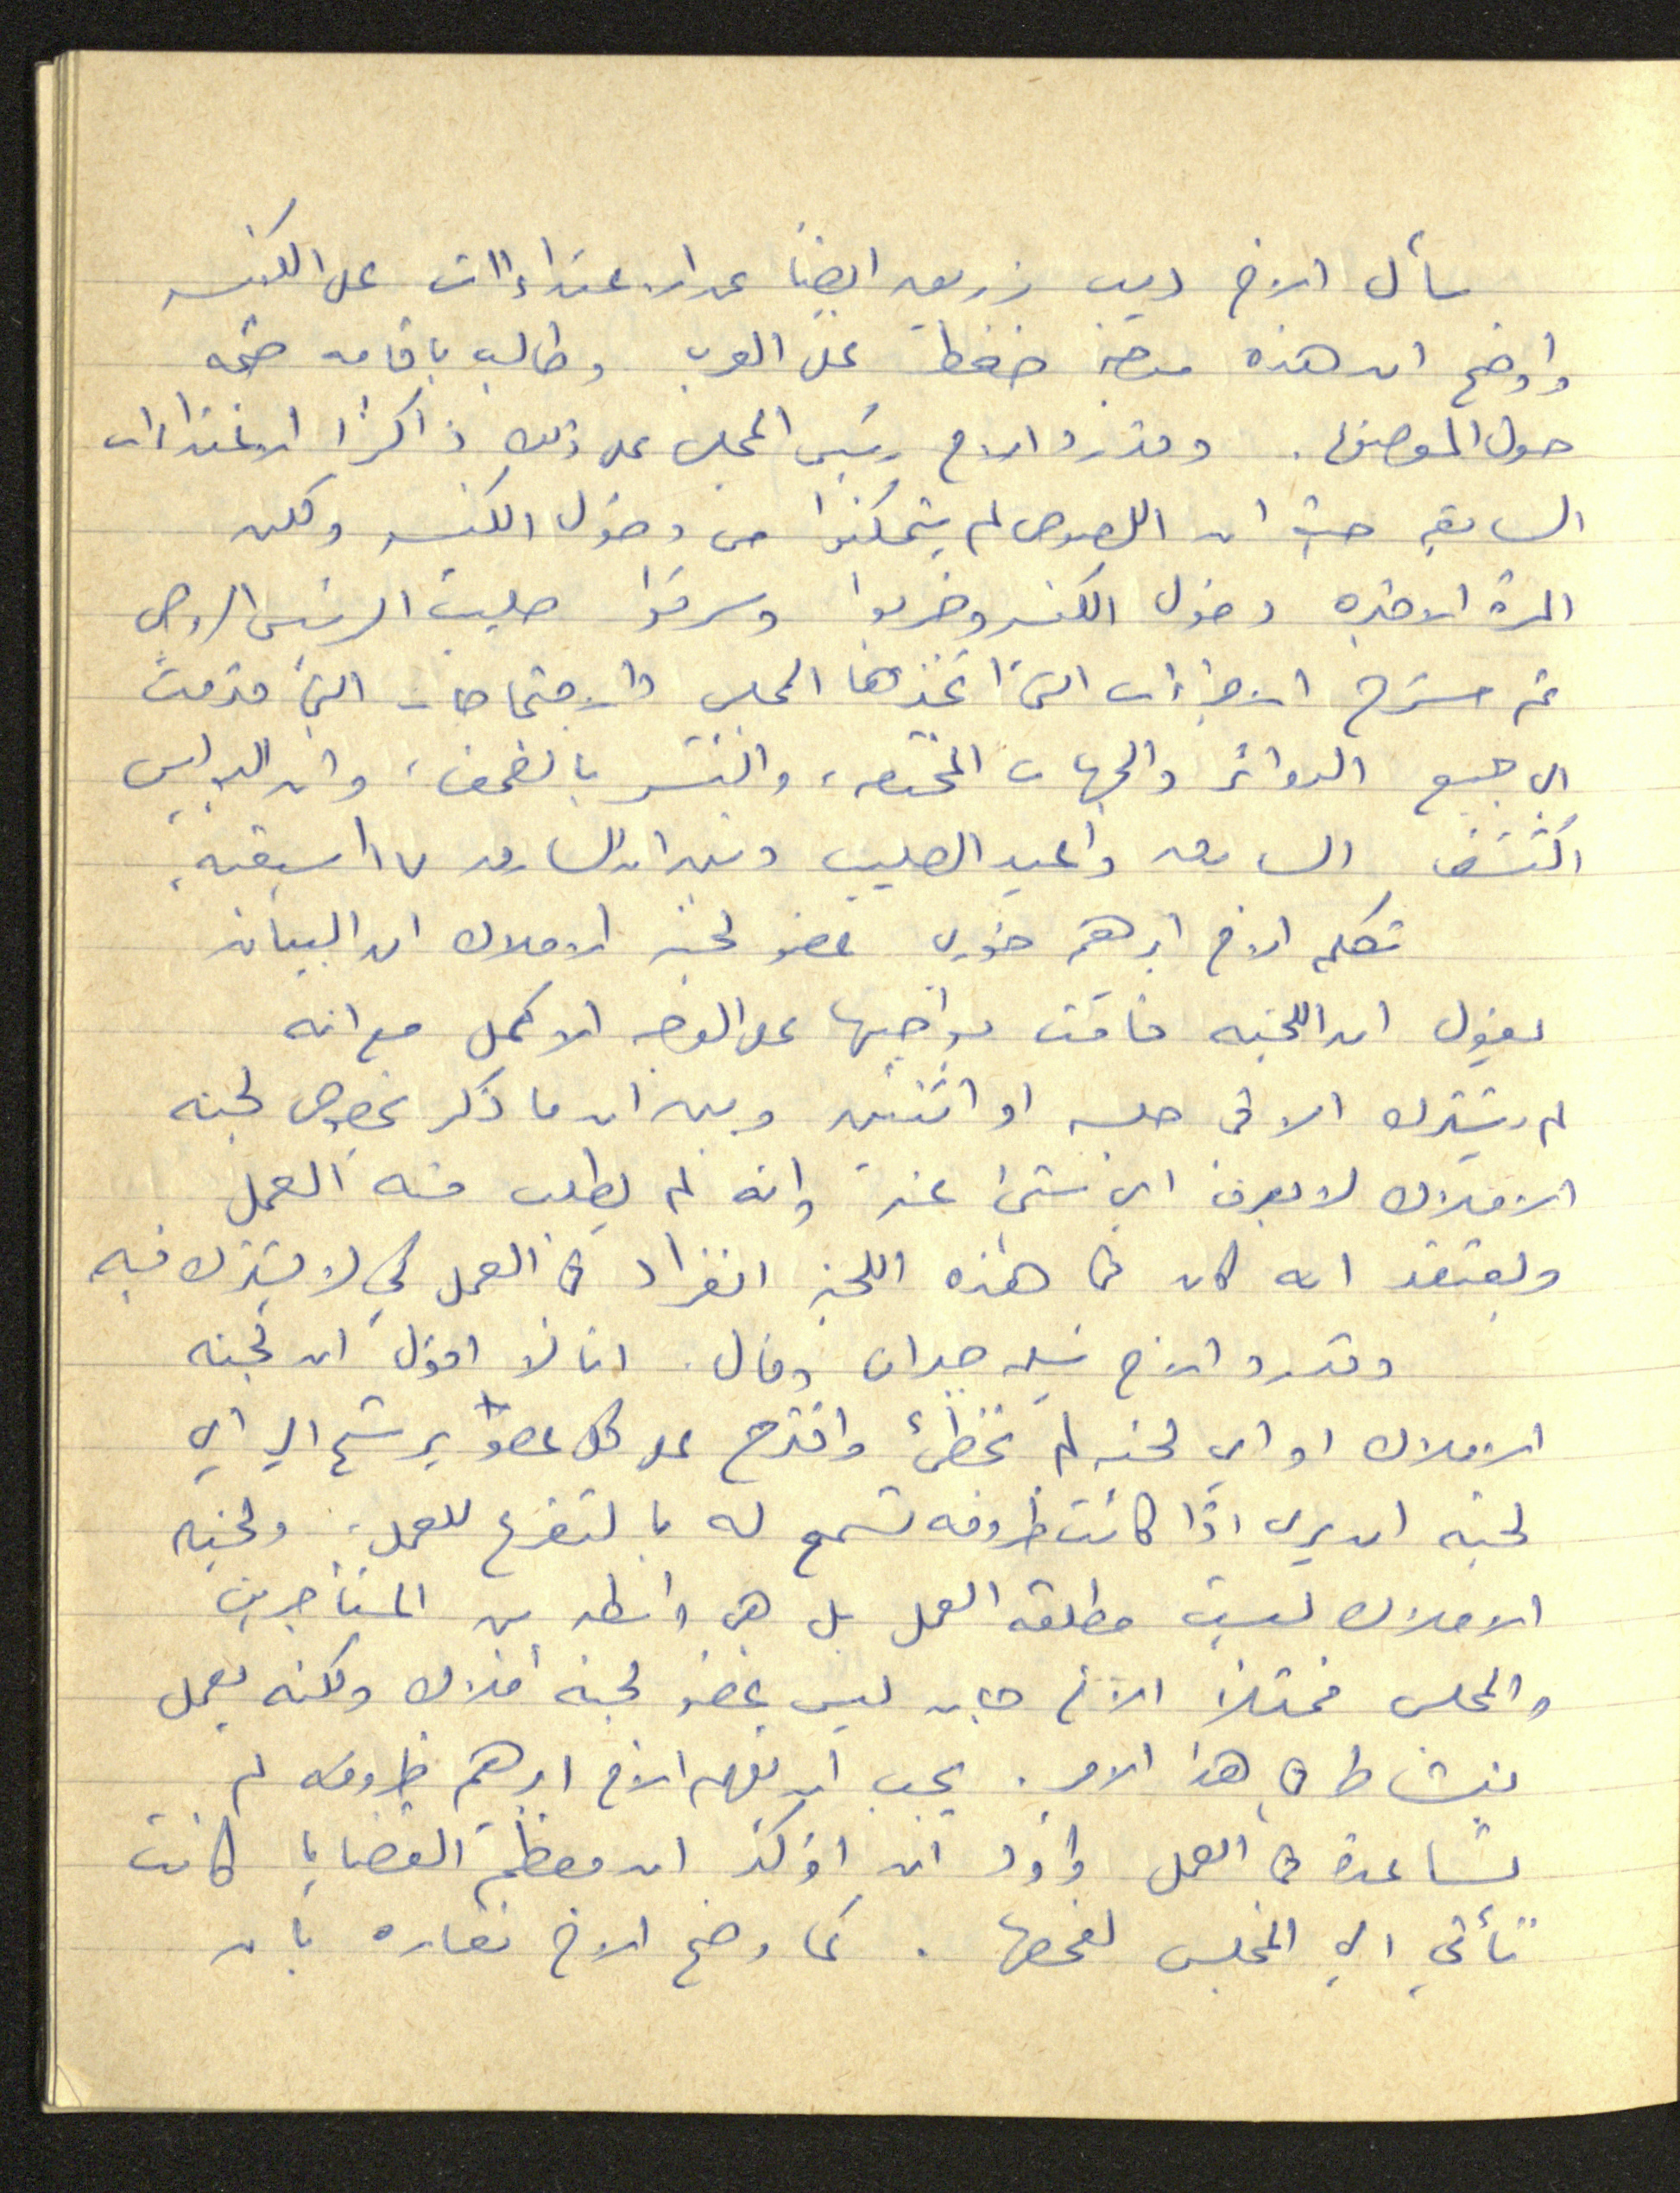 سأل الاخ ديب زريق ايضًا عن الاعتداءات على الكنيسه
واوضح ان هذه موجة ضغط على العرب وطالب باقامه ضجه
حول الموضوع. وقد رد الاخ رئيس المجلس على ذلك ذاكرًا الاعتداءات
السابقه حيث ان اللصوص لم يتمكنوا من دخول الكنيسه ولكن
المرة الاخيره دخول الكنيسه وخربوا وسرقوا صليب الرئيس الروحي
ثم شرح الاجراءات التي اتخذها المجلس والاحتجاجات التي قدمت
الى جميع الدوائر والجهات المختصه، والنشر بالصحف، وان البوليس
اكتشف السارق واعيد الصليب وتبين ان السارق له اسبقيه
تكلم الاخ ابرهيم خوري عضو لجنة الاملاك ان البيان
يقول ان اللجنه قامت بواجبها على الوجه الاكمل مع انه
لم يشترك الا في جلسه او اثنتين وبين ان ما ذكر بخصوص لجنه
الاملاك لا يعرف اي شئ عنه وانه لم يطلب منه العمل
ويعتقد انه كان في هذه اللجنة انفراد في العمل لكي لا يشترك فيه
وقد رد الاخ نبيه جبران وقال. انا لا اقول ان لجنه
الاملاك او اي لجنه لم تخطئ واقترح على كل عضو يرشح الى اي
لجنه ان يرى اذا كانت ظروفه تسمح له بالتفرغ للعمل. ولجنه
الاملاك ليست مطلقه العمل بل هي واسطه بين المستأجرين
والمجلس فمثلا الاخ ليس عضو لجنه املاك ولكنه يعمل
بنشاط في هذا الامر. يجب ان يفهم الاخ ابرهيم ظروفه لم
تساعده في العمل واود ان اؤكد ان معظم القضايا كانت
تأتي الى المجلس لفحصها. كما وضح الاخ نصاره بان